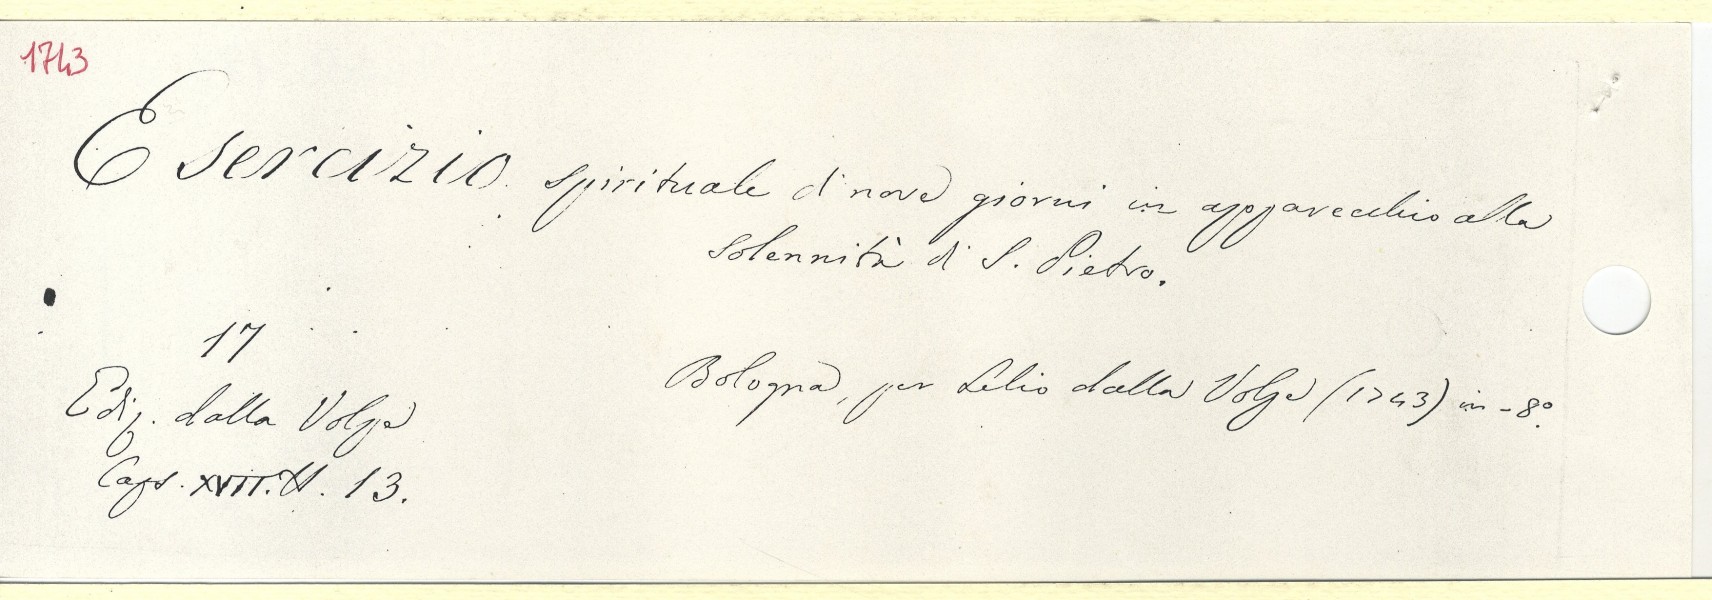 1743
Esercizio spirituale di nove giorni in apparecchio alla
solennità di S. Pietro.
17
Ediz. dalla Volpe
Caps. XVII. N. 13.
Bologna, per Lelio dalla Volpe (1743) in-8º.